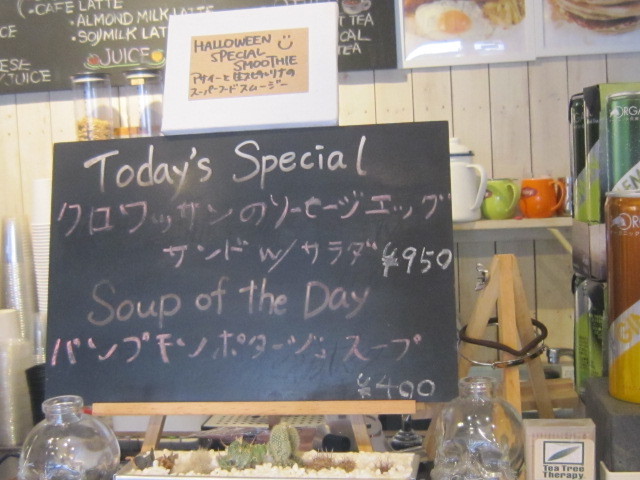 ・CAFE LATTE
・ALMOND MILK LATTE
・SOYMILK LAT
JUICE
TEA
HALLOWEEN
SPECIAL
SMOOTHIE
スーパーフードスムージー
Today's Special
クロワッサンのソーセージエッグ
サンド w/ サラダ ¥950
Soup of the Day
パンプキンポタージュスープ
¥400
Tea Tree
Therapy